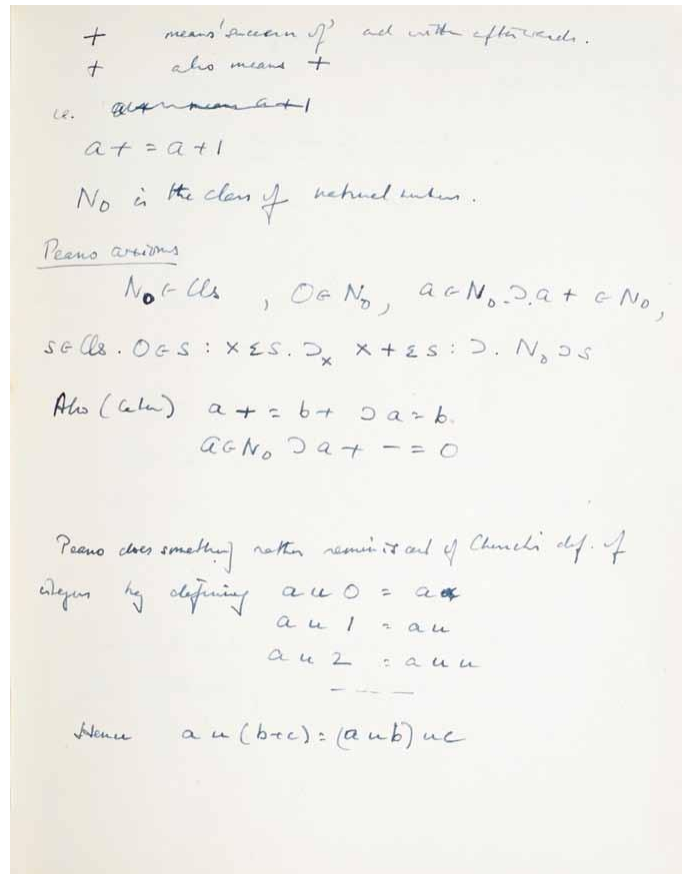 + means 'successor of' and written afterwards.
+ also means +
i.e. a+ means a+1
a+ = a+1
N₀ is the class of natural numbers.
Peano axioms
N₀ ϵ Cls , 0 ϵ N₀, a ϵ N₀.Ɔ.a+ ϵ N₀,
s ϵ Cls . 0 ϵ s : x ε s. Ɔₓ x+ ε s : Ɔ. N₀ Ɔ s
Also (later) a+ = b+ Ɔ a = b.
a ϵ N₀ Ɔ a+ - = 0
Peano does something rather reminiscent of Church's def. of
integers by defining a u 0 = a
a u 1 = a u
a u 2 = a u u
Hence a u (b+c) = (a u b) u c